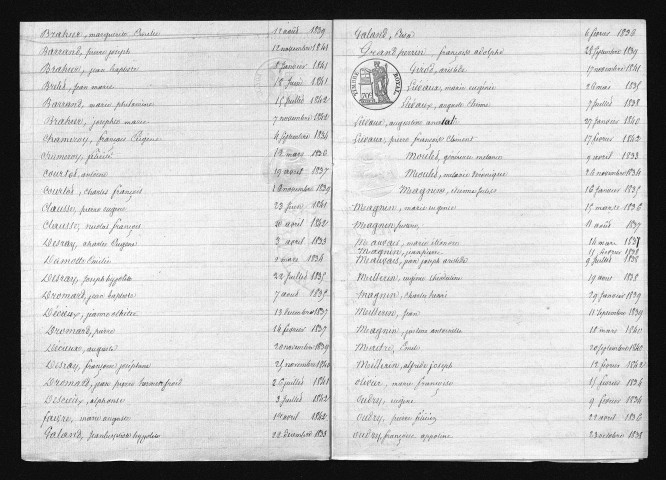 Braheir, marguerite 12 août 1839
Barrand, pierre joseph 12 novembre 1841
Braheir, jean baptiste 8 janvier 1841
jean marie 12 juin 1841
Barrand, marie philomène 15 juillet 1842
Braheir, joséphe marie 7 novembre 1842
Chameroy, françois Eugène 4 Septembre 1834
Chameroy, félicité 12 mars 1836
Courtot, antoine 19 avril 1837
Courtot, charles françois 10 novembre 1839
Clausse, pierre eugène 23 juin 1841
Clausse, nicolas françois 20 avril 1842
Desray, charles Eugène 3 avril 1833
Damotte Emilie 9 mars 1834
Desray, joseph hyppolite 22 juillet 1835
Dromard, jean baptiste 7 août 1835
Décieux, jeanne 13 décembre 1837
Dromard, pierre 14 février 1837
Décieux, auguste 20 novembre 1839
Desray, françoise joséphine 25 novembre 1840
Dromard, jean pierre 26 juillet 1841
alphonse 3 juillet 1842
faivre, marie auguste 19 avril 1842
Galand, hyppolite 29 décembre 1833
Galand, 6 février 1836
Grandperrin françois adolphe 28 Septembre 1839
TIMBRE ROYAL
aristide 17 novembre 1841
Liévaux, marie eugénie 26 mai 1835
Liévaux, auguste Etienne 7 juillet 1838
Lievaux, augustine 27 janvier 1840
Lievaux, pierre françois Clément 17 février 1842
mélanie 9 avril 1833
mélanie véronique 26 novembre 1834
Magnin, 16 janvier 1835
Magnin, marie eugénie 15 mars 1836
Magnin pierre, 11 août 1837
Mauvais, marie éléonore 14 mai 1837
Magnin, jean pierre 11 février 1838
Mauvais, jean joseph aristide 9 juillet 1838
eugène 19 août 1838
Magnin, charles 29 janvier 1839
jean 11 Septembre 1839
Magnin, justine antoinette 10 mars 1840
Maitre, Emile 20 Septembre 1840
alfred joseph 12 février 1842
olivier, marie françoise 15 février 1834
Oudry, eugène 9 février 1834
Oudry, pierre 22 avril 1836
oudry françoise appoline 23 octobre 1838